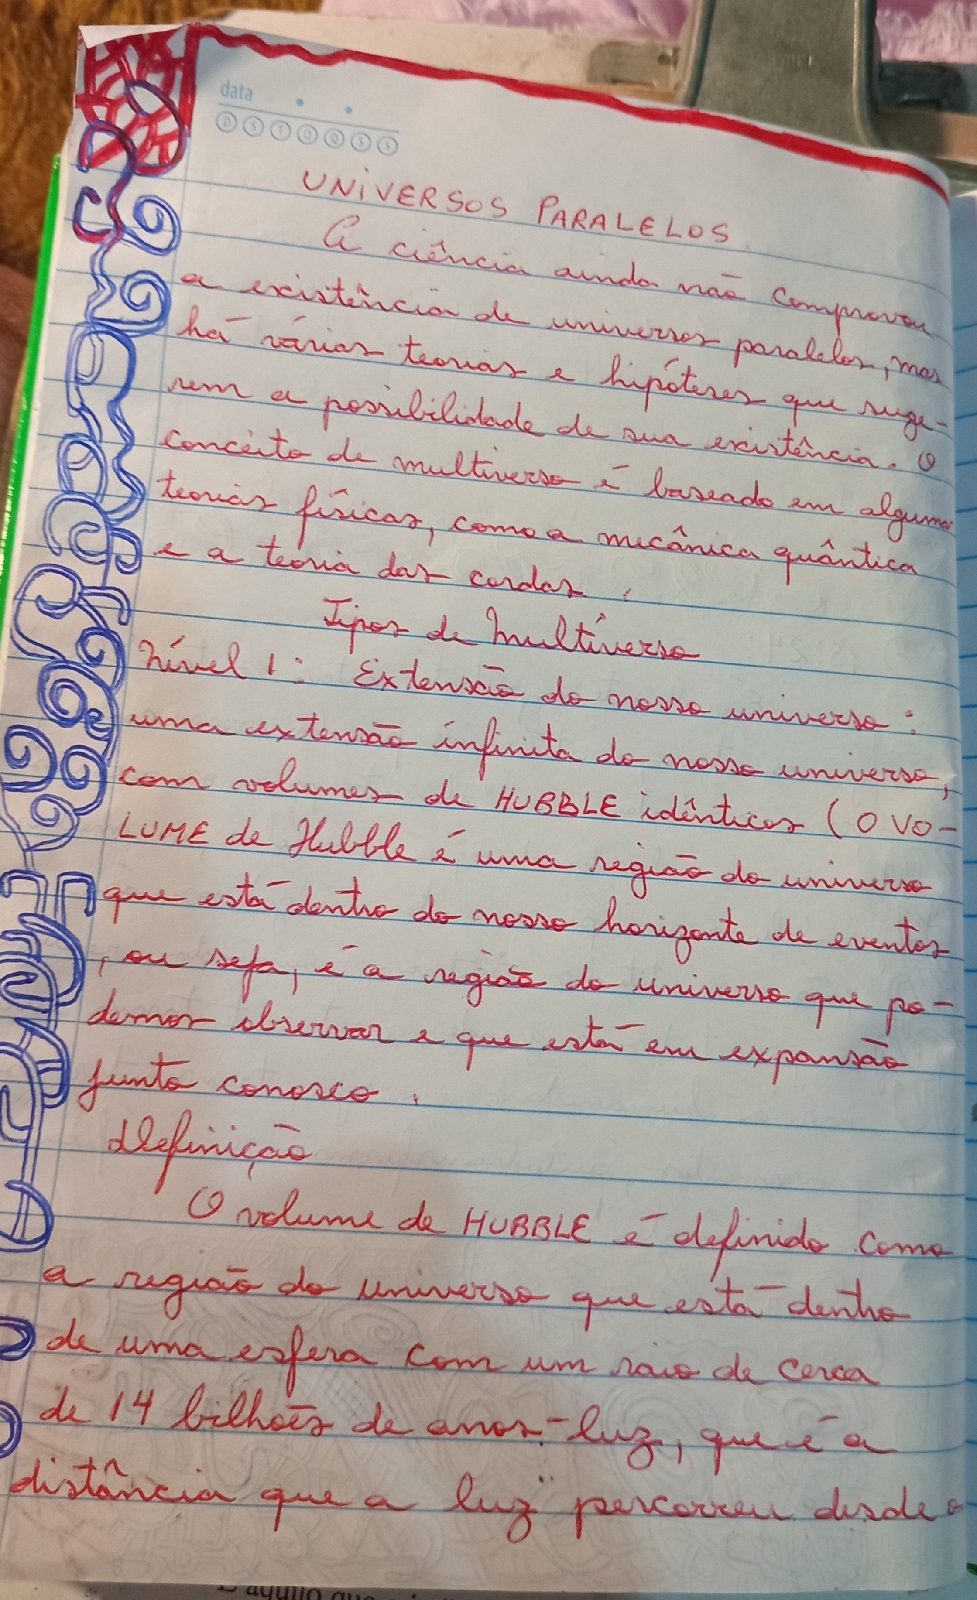 data
D S T Q Q S S
UNIVERSOS PARALELOS
A ciência ainda não comprovou
a existência de universos paralelos, mas
há várias teorias e hipóteses que suge-
rem a possibilidade de sua existência. O
conceito de multiverso é baseado em algumas
teorias físicas, como a mecânica quântica
e a teoria das cordas.
Tipos de Multiverso
Nível 1: Extensão do nosso universo:
uma extensão infinita do nosso universo,
com volumes de HUBBLE idênticos (O VO-
LUME de Hubble é uma região do universo
que está dentro do nosso horizonte de eventos
, ou seja, é a região do universo que po-
demos observar e que está em expansão
junto conosco.
Definição
O volume de HUBBLE é definido como
a região do universo que está dentro
de uma esfera com um raio de cerca
de 14 bilhões de anos-luz, que é a
distância que a luz percorreu desde o